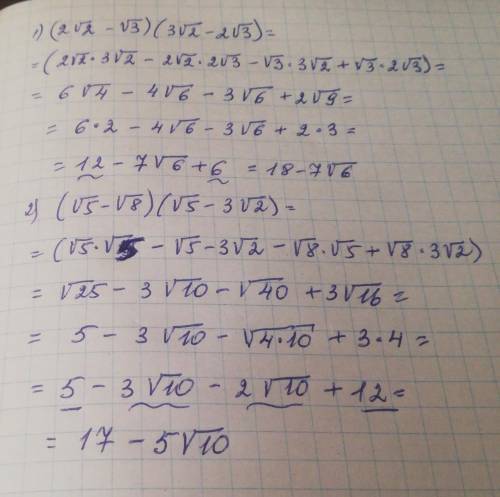 1) (2√2 - √3)(3√2 - 2√3) =
= (2√2 · 3√2 - 2√2 · 2√3 - √3 · 3√2 + √3 · 2√3) =
= 6√4 - 4√6 - 3√6 + 2√9 =
= 6·2 - 4√6 - 3√6 + 2·3 =
= 12 - 7√6 + 6 = 18 - 7√6
2) (√5 - √8)(√5 - 3√2) =
= (√5 · √5 - √5 - 3√2 - √8 · √5 + √8 · 3√2)
= √25 - 3√10 - √40 + 3√16 =
= 5 - 3√10 - √4·10 + 3·4 =
= 5 - 3√10 - 2√10 + 12 =
= 17 - 5√10